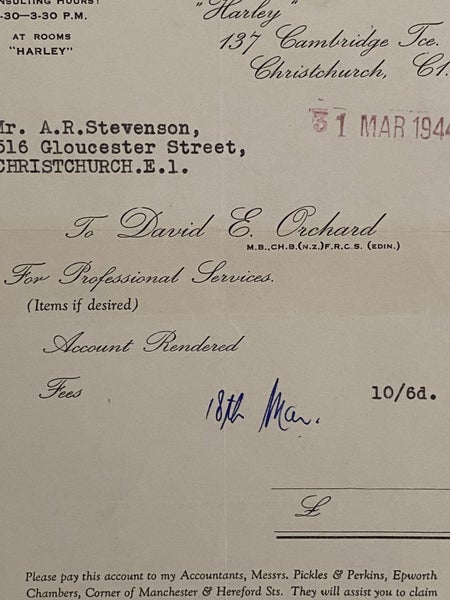 CONSULTING HOURS:
.30-3-30 P.M.
AT ROOMS
"HARLEY"
"Harley"
137 Cambridge Tce.
Christchurch, C1.
31 MAR 1944
Mr. A.R.Stevenson,
516 Gloucester Street,
CHRISTCHURCH.E.1.
To David E. Orchard
M.B.,CH.B.(N.Z.)F.R.C.S. (EDIN.)
For Professional Services.
(Items if desired)
Account Rendered
Fees
18th Mar.
10/6d.
£
Please pay this account to my Accountants, Messrs. Pickles & Perkins, Epworth
Chambers, Corner of Manchester & Hereford Sts. They will assist you to claim